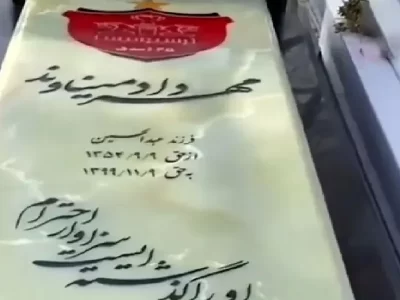 مهرداد میناوند
فرزند عبدالحسین
از حق ۱۳۵۴/۹/۹
به حق ۱۳۹۹/۱۱/۹
سزاوار احترام
ایست
او را گذشته